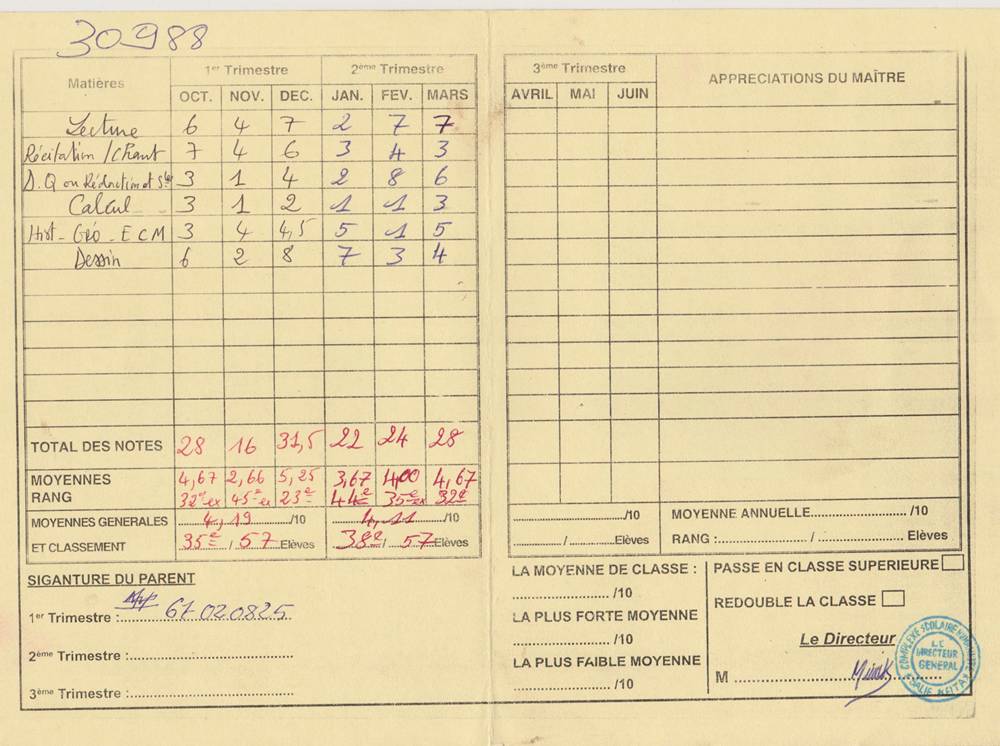 30988
Matières 1er Trimestre 2ème Trimestre
OCT. NOV. DEC. JAN. FEV. MARS
Lecture 6 4 7 2 7 7
Récitation / Chant 7 4 6 3 4 3
D.Q ou Rédaction et 3 1 4 2 8 6
Calcul 3 1 2 1 1 3
Hist - Géo - ECM 3 4 4,5 5 1 5
Dessin 6 2 8 7 3 4
TOTAL DES NOTES 28 16 31,5 22 24 28
MOYENNES 4,67 2,66 5,25 3,67 4,00 4,67
RANG 32e ex 45e ex 23e 44e 35e ex 32e
MOYENNES GENERALES 4,19 /10 4,11 /10
ET CLASSEMENT 35e / 57 Elèves 38e / 57 Elèves
SIGANTURE DU PARENT
1er Trimestre : 67020825
2ème Trimestre :
3ème Trimestre :
3ème Trimestre APPRECIATIONS DU MAÎTRE
AVRIL MAI JUIN
/10 MOYENNE ANNUELLE /10
/ Elèves RANG : / Elèves
LA MOYENNE DE CLASSE :
/10
LA PLUS FORTE MOYENNE
/10
LA PLUS FAIBLE MOYENNE
/10
PASSE EN CLASSE SUPERIEURE
REDOUBLE LA CLASSE
Le Directeur
M
COMPLEXE SCOLAIRE
LE
DIRECTEUR
GENERAL
SALIF KEITA